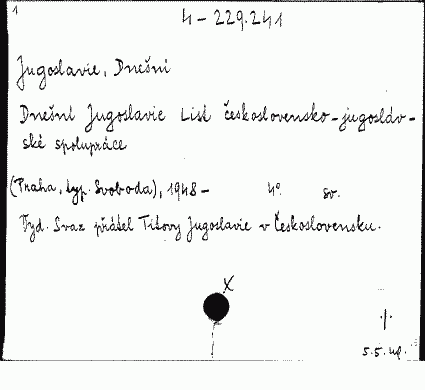 1
4-229.241
Jugoslavie, Dnešní
Dnešní Jugoslavie List československo-jugosláv-
ské spolupráce
(Praha, typ. Svoboda), 1948- 4° sv.
Vyd. Svaz přátel Titovy Jugoslavie v Československu.
X
5.5.